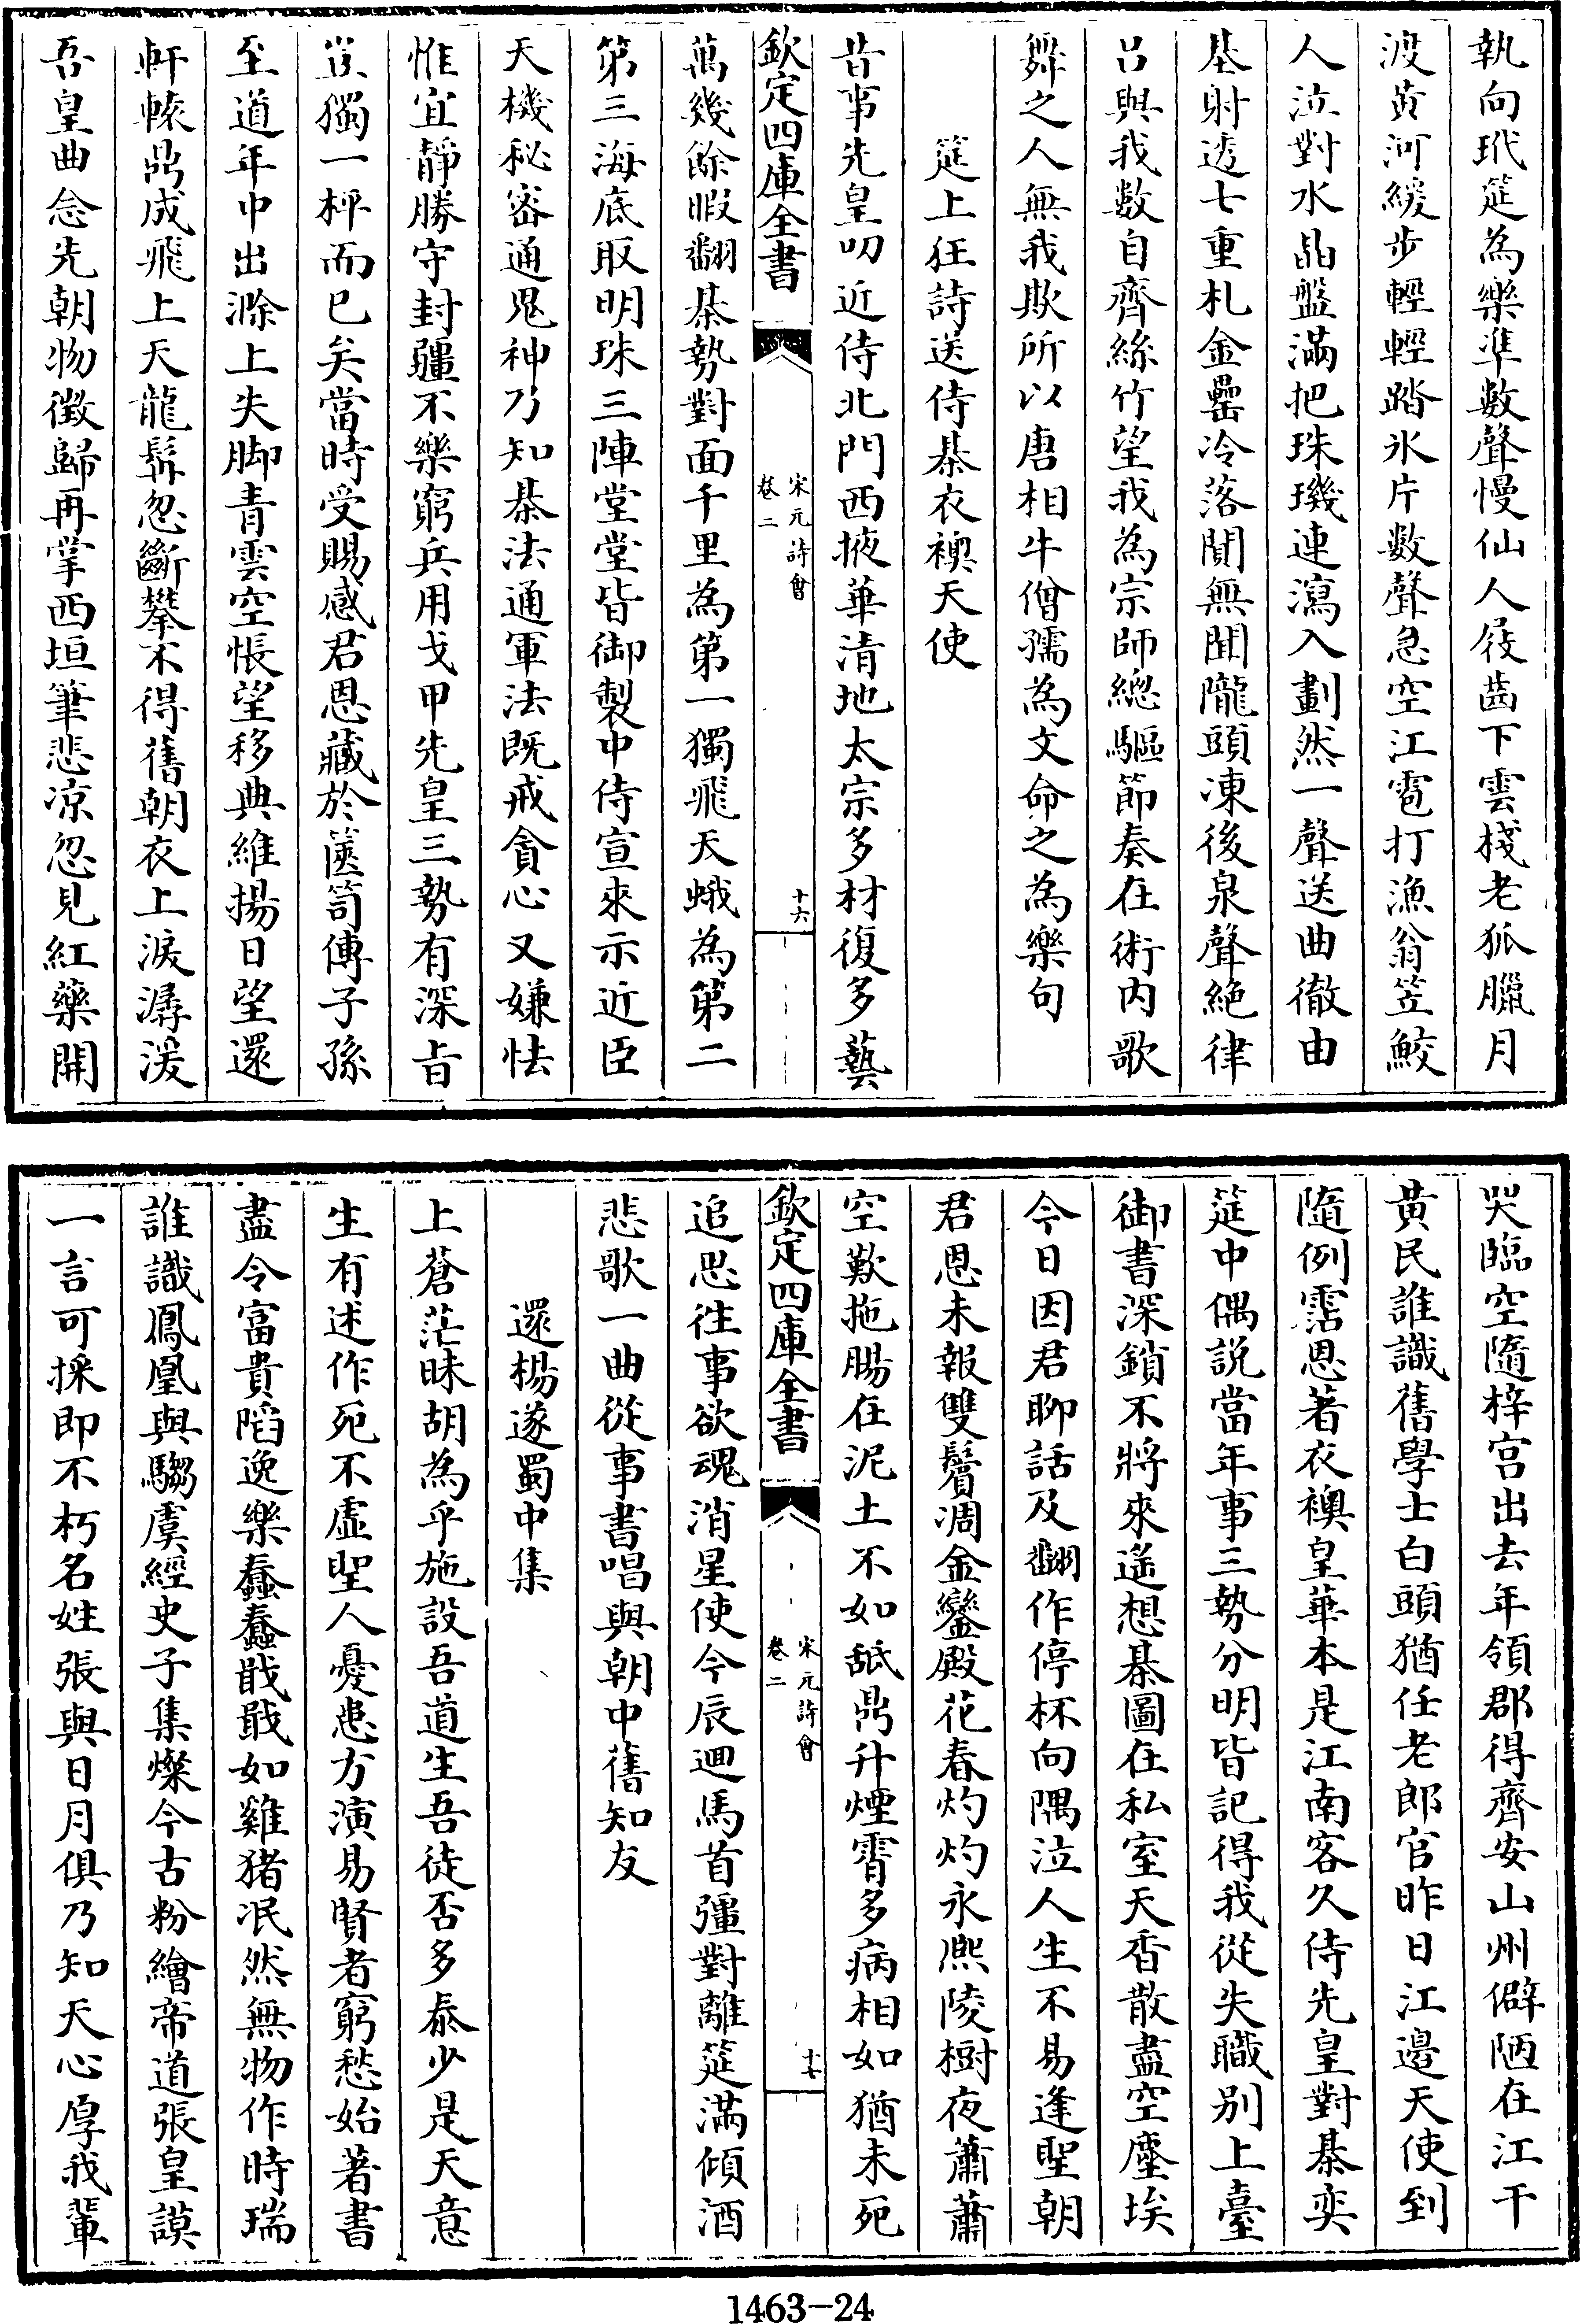 執向玳筵為樂準數聲慢仙人屐齒下雲棧老狐臘月
渡黃河緩步輕輕踏氷片數聲急空江雹打漁翁笠鮫
人泣對水晶盤滿把珠璣連瀉入劃然一聲送曲徹由
基射透七重札金罍冷落閴無聞隴頭凍後泉聲絶律
吕與我數自齊絲竹望我為宗師總驅節奏在術内歌
舞之人無我欺所以唐相牛僧孺為文命之為樂句
筵上狂詩送侍棊衣襖天使
昔事先皇叨近侍北門西掖華清地太宗多材復多藝
欽定四庫全書
宋元詩會
卷二
十六
萬幾餘暇翻棊勢對面千里為第一獨飛天蛾為第二
第三海底取明珠三陣堂堂皆御製中侍宣來示近臣
天機秘密通鬼神乃知棊法通軍法既戒貪心又嫌怯
惟宜靜勝守封疆不樂窮兵用戈甲先皇三勢有深旨
豈獨一枰而已矣當時受賜感君恩藏於篋笥傳子孫
至道年中出滁上失脚青雲空悵望移典維揚日望還
軒轅鼎成飛上天龍髯忽斷攀不得舊朝衣上淚潺湲
吾皇曲念先朝物徵歸再掌西垣筆悲凉忽見紅藥開
哭臨空隨梓宫出去年領郡得齊安山州僻陋在江干
黄民誰識舊學士白頭猶任老郎官昨日江邉天使到
隨例霑恩著衣襖皇華本是江南客久侍先皇對棊奕
筵中偶說當年事三勢分明皆記得我從失職别上臺
御書深鎖不將來遙想棊圖在私室天香散盡空塵埃
今日因君聊話及翻作停杯向隅泣人生不易逢聖朝
君恩未報雙鬢凋金鑾殿花春灼灼永熈陵樹夜蕭蕭
空歎拖腸在泥土不如舐鼎升煙霄多病相如猶未死
欽定四庫全書
宋元詩會
卷二
十七
追思徃事欲魂消星使今辰迴馬首彊對離筵滿傾酒
悲歌一曲從事書唱與朝中舊知友
還楊遂蜀中集
上蒼茫昧胡為乎施設吾道生吾徒否多泰少是天意
生有述作死不虚聖人憂患方演易賢者窮愁始著書
盡令富貴䧟逸樂蠢蠢戢戢如雞猪冺然無物作時瑞
誰識鳳凰與騶虞經史子集燦今古粉繪帝道張皇謨
一言可採即不朽名姓張與日月俱乃知天心厚我輩
1463-24